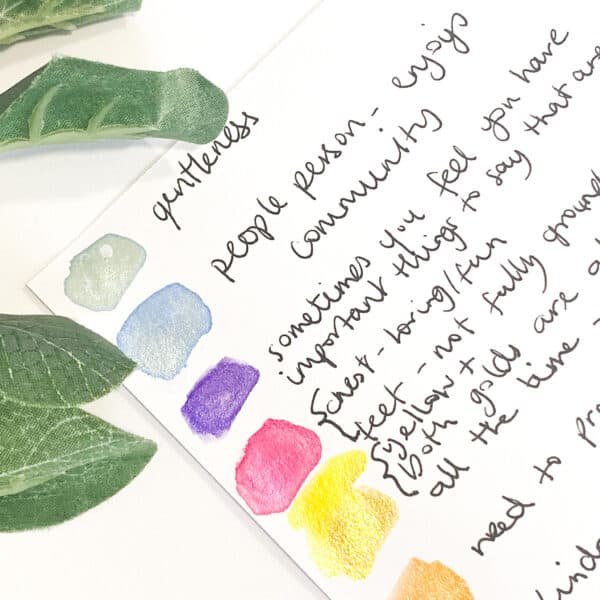 gentleness
people person - enjoys
community
sometimes you feel you have
important things to say that are
chest - loving/fun
feet - not fully ground
yellow +
both golds are a
all the time -
need to pr